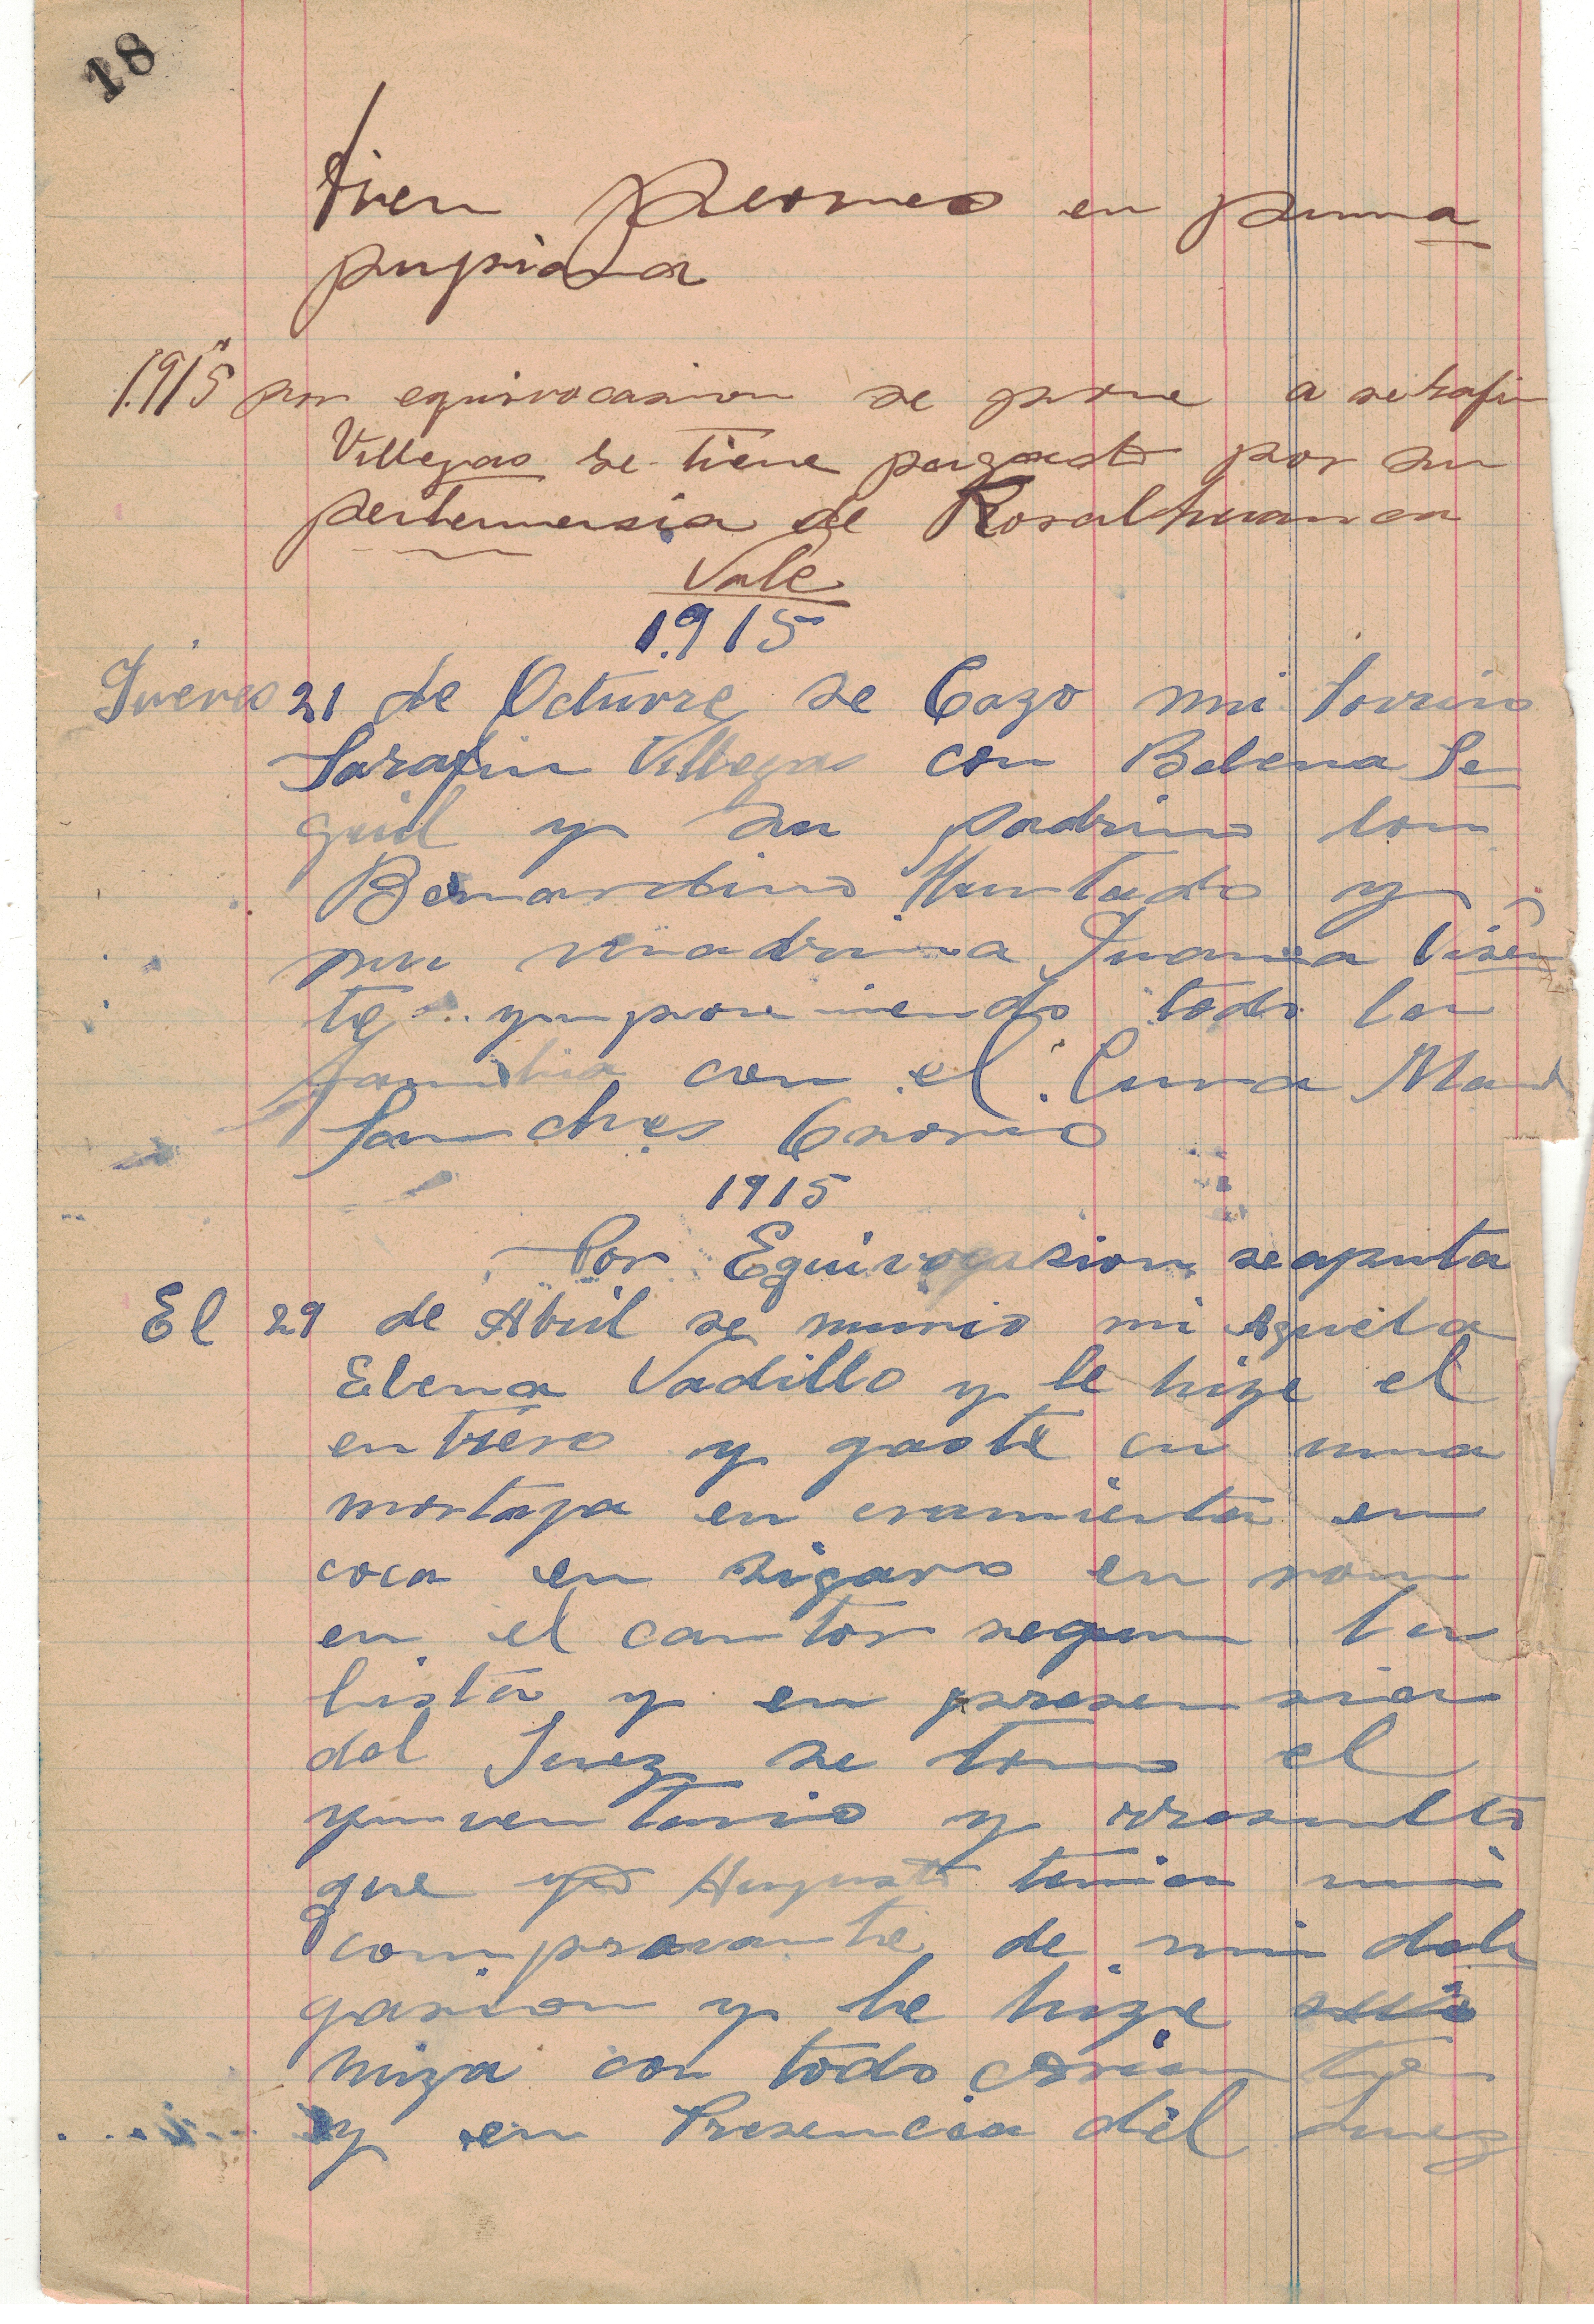 18
tren peones en puma
pugiada
1915 por equivocasion se pone a serafin
Villegas se tiene pagado por su
pertenensia de Rosalhuanca
Vale
1915
Jueves 21 de Octuvre se Cazo mi sovrino
Sarafin Villegas con Belena Se
guil y su padrino don
Bernardino Hurtado y
su madrina Juana Visen
te ynponiendo todo la
familia con el Cura Man
Sanches Osorio
1915
Por Equivocasion se apunta
El 29 de Abril se murio mi Aguela
Elena Vadillo y le hize el
entiero y gaste en una
mortaja en eramienta en
coca en sigaro en ron
en el cantor segun la
lista y en presensia
del Juez se tomo el
ynventario y rresulto
que yo Augusto tenia mi
comprovante de mi dele
gasion y le hize
miza con todo
y en Presencia del Juez